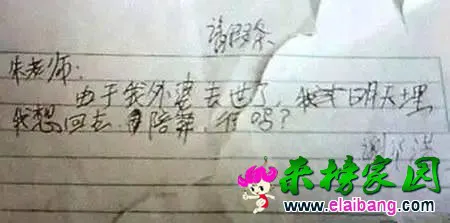 请假条
朱老师:
由于我外婆去世了,我 明天埋
我想回去 陪葬,行吗?
采榜家园
www.elaibang.com